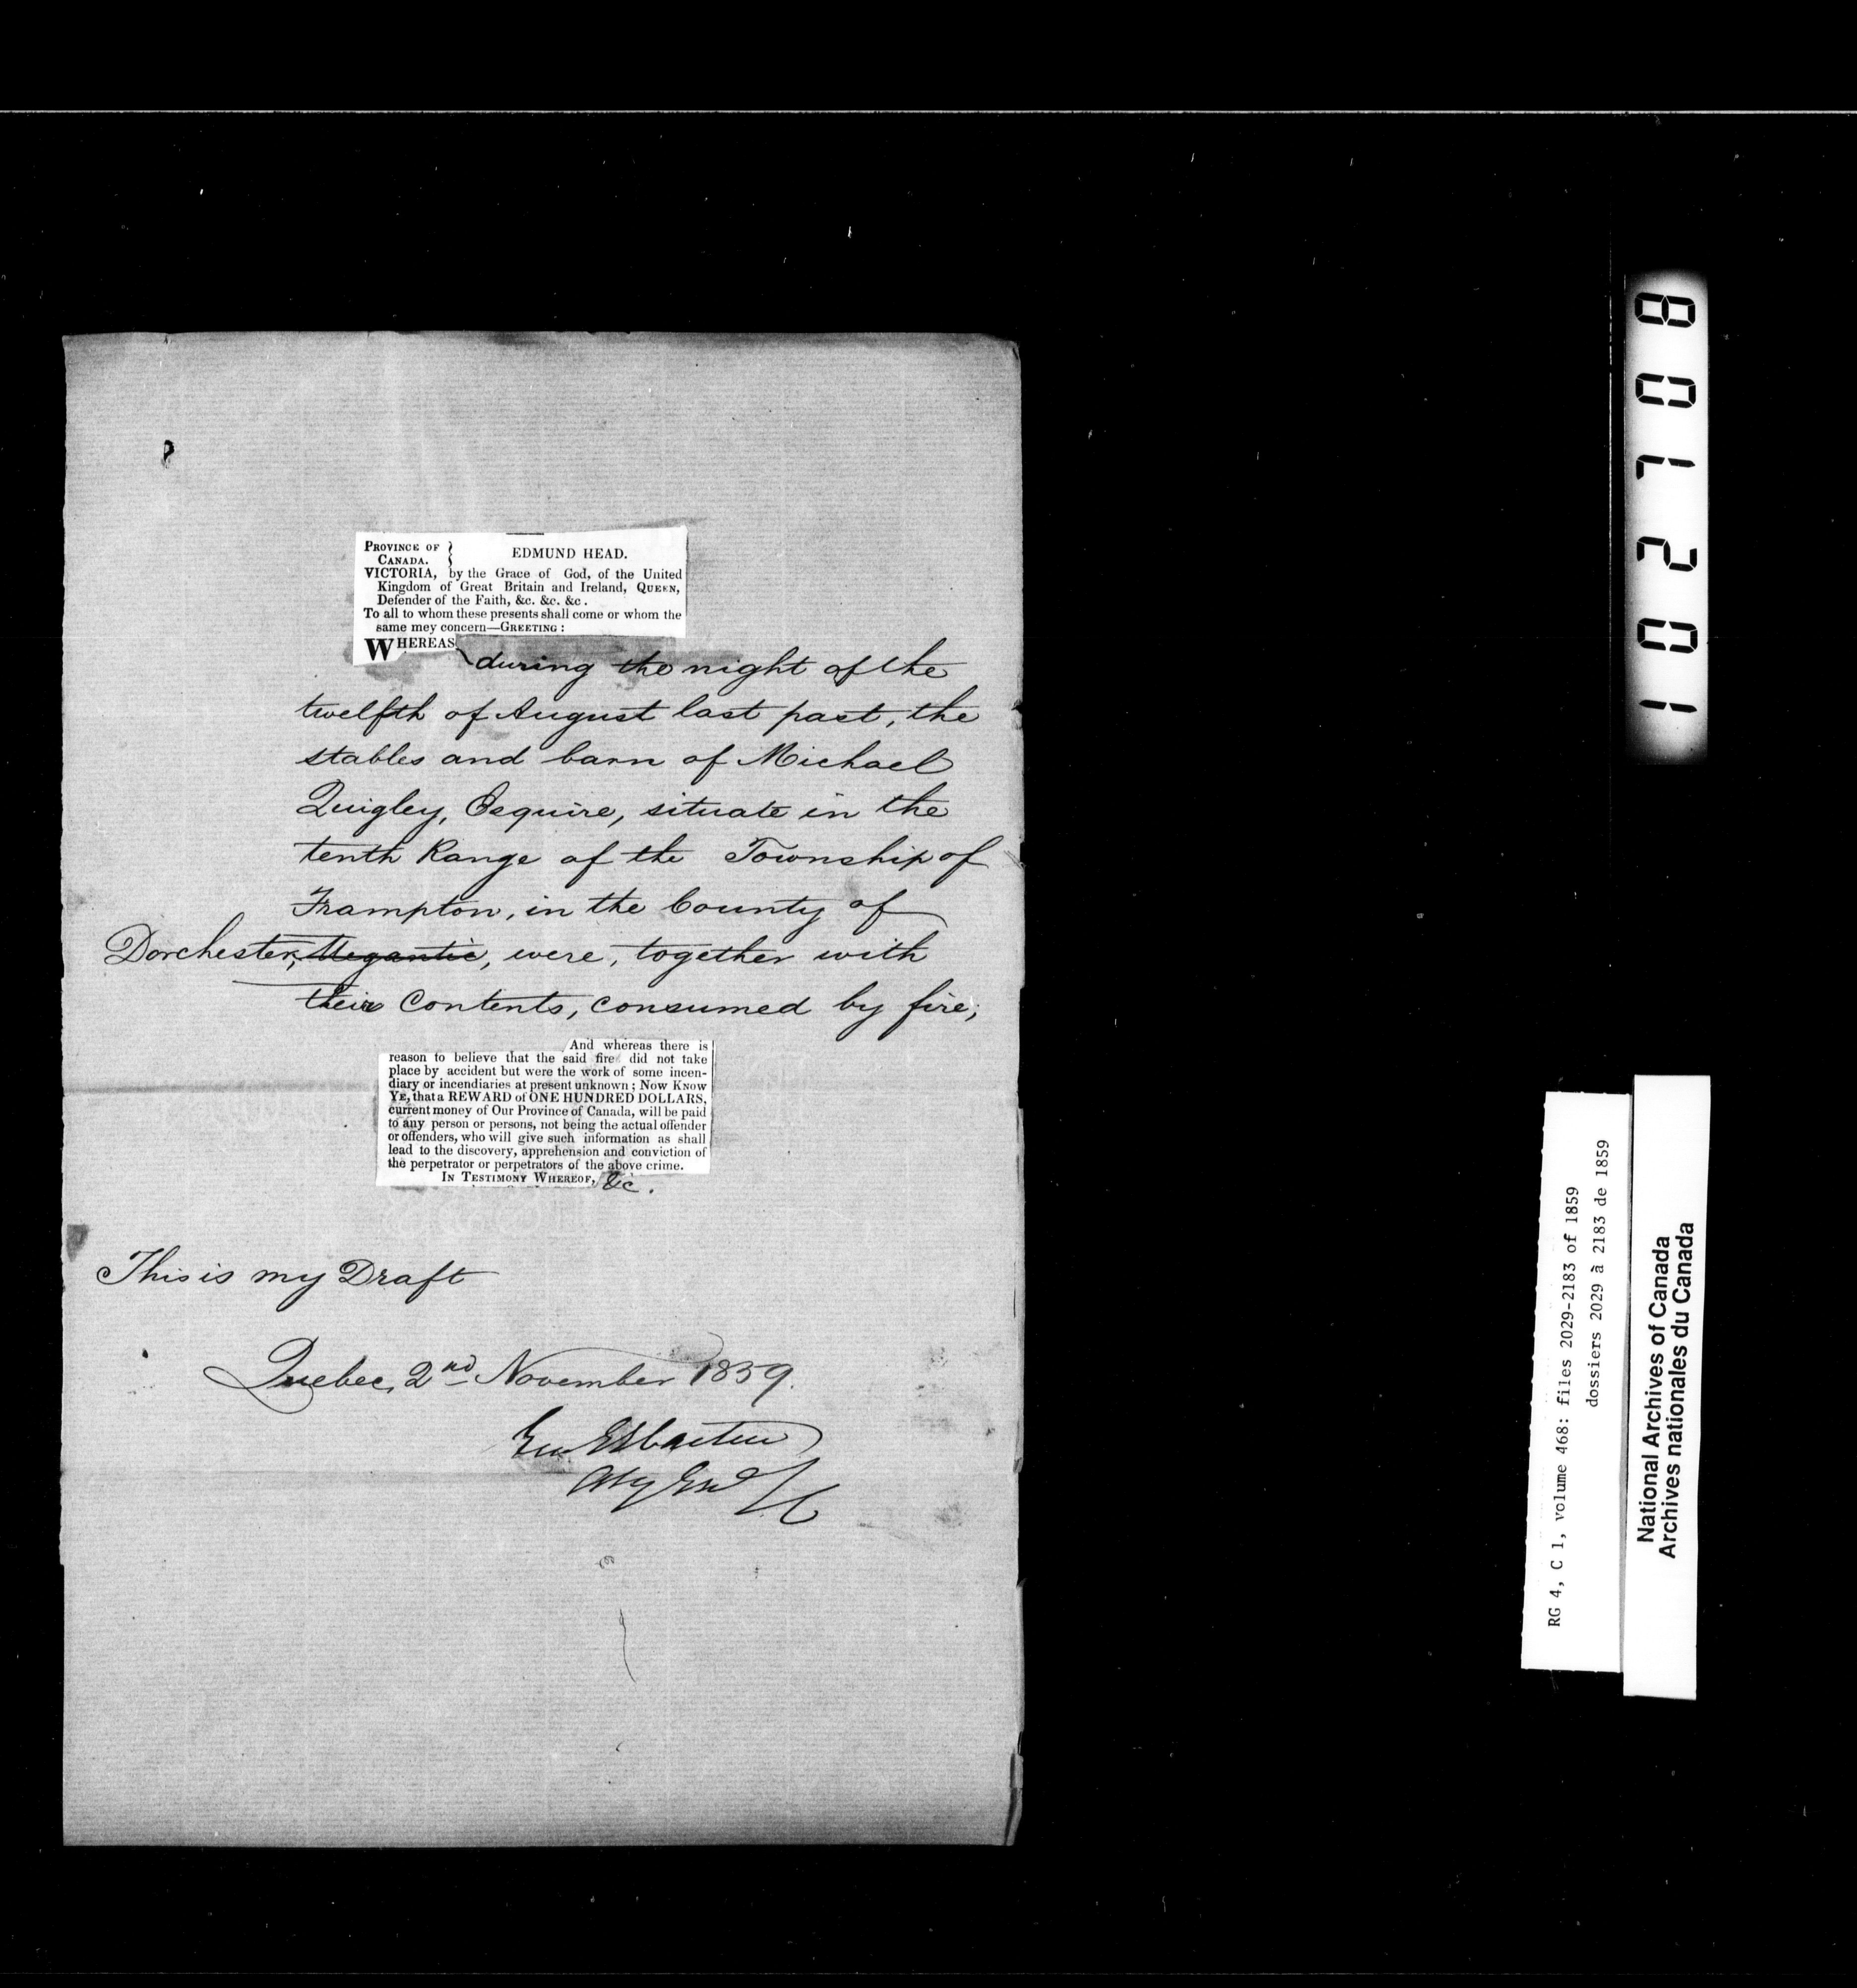 PROVINCE OF } EDMUND HEAD.
CANADA. }
VICTORIA, by the Grace of God, of the United
Kingdom of Great Britain and Ireland, QUEEN,
Defender of the Faith, &c. &c. &c.
To all to whom these presents shall come or whom the
same mey concern—GREETING:
WHEREAS
during the night of the
twelfth of August last past, the
stables and barn of Michael
Quigley, Esquire, situate in the
tenth Range of the Township of
Frampton, in the County of
Dorchester, Megantic, were, together with
their Contents, consumed by fire;
And whereas there is
reason to believe that the said fire did not take
place by accident but were the work of some incen-
diary or incendiaries at present unknown; NOW KNOW
YE, that a REWARD of ONE HUNDRED DOLLARS,
current money of Our Province of Canada, will be paid
to any person or persons, not being the actual offender
or offenders, who will give such information as shall
lead to the discovery, apprehension and conviction of
the perpetrator or perpetrators of the above crime.
IN TESTIMONY WHEREOF, &c.
This is my Draft
Quebec, 2nd November 1859.
Geo. E. Cartier
Atty Genl LC
RG 4, C 1, volume 468: files 2029-2183 of 1859
dossiers 2029 à 2183 de 1859
National Archives of Canada
Archives nationales du Canada
107108